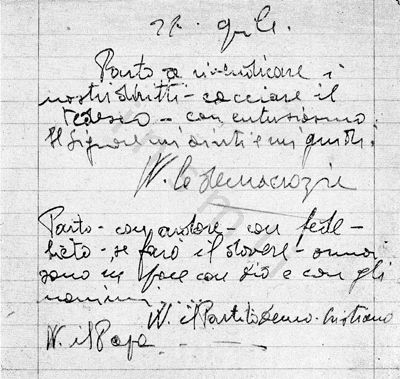 27. aprile.
Parto a rivendicare i
nostri diritti - cacciare il
tedesco - con entusiasmo.
Il Signore mi aiuti e mi guidi.
W. la democrazia
Parto - con ardore - con fede -
lieto - se farò il dovere -
sono in pace con Dio e con gli
uomini.....
W. il Partito Demo-Cristiano
W. il Papa